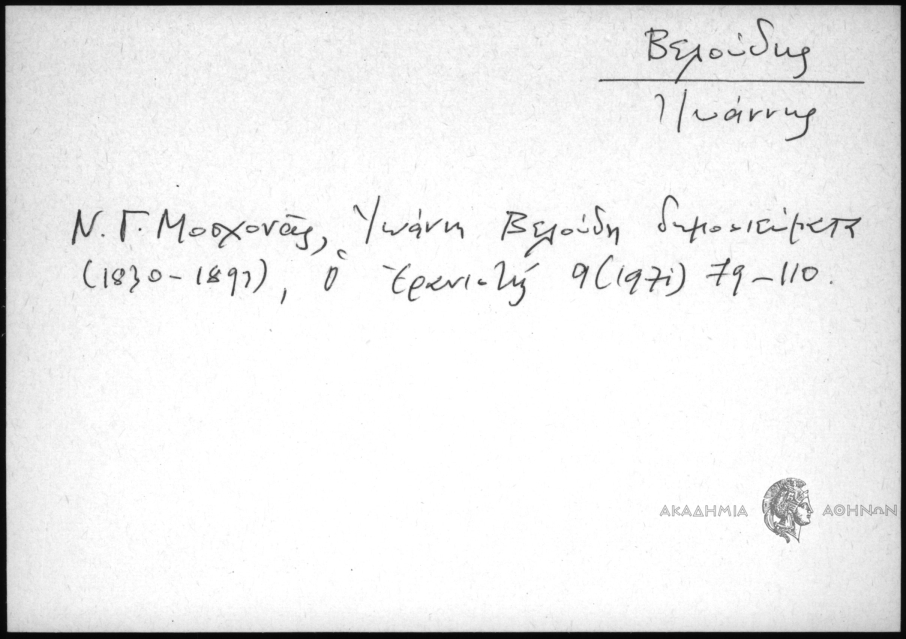 Βελούδης
Ἰωάννης
Ν. Γ. Μοσχονᾶς, Ἰωάννη Βελούδη δημοσιεύματα
(1830-1893), Ὁ Ἐρανιστής 9 (1971) 79-110.
ΑΚΑΔΗΜΙΑ ΑΘΗΝΩΝ